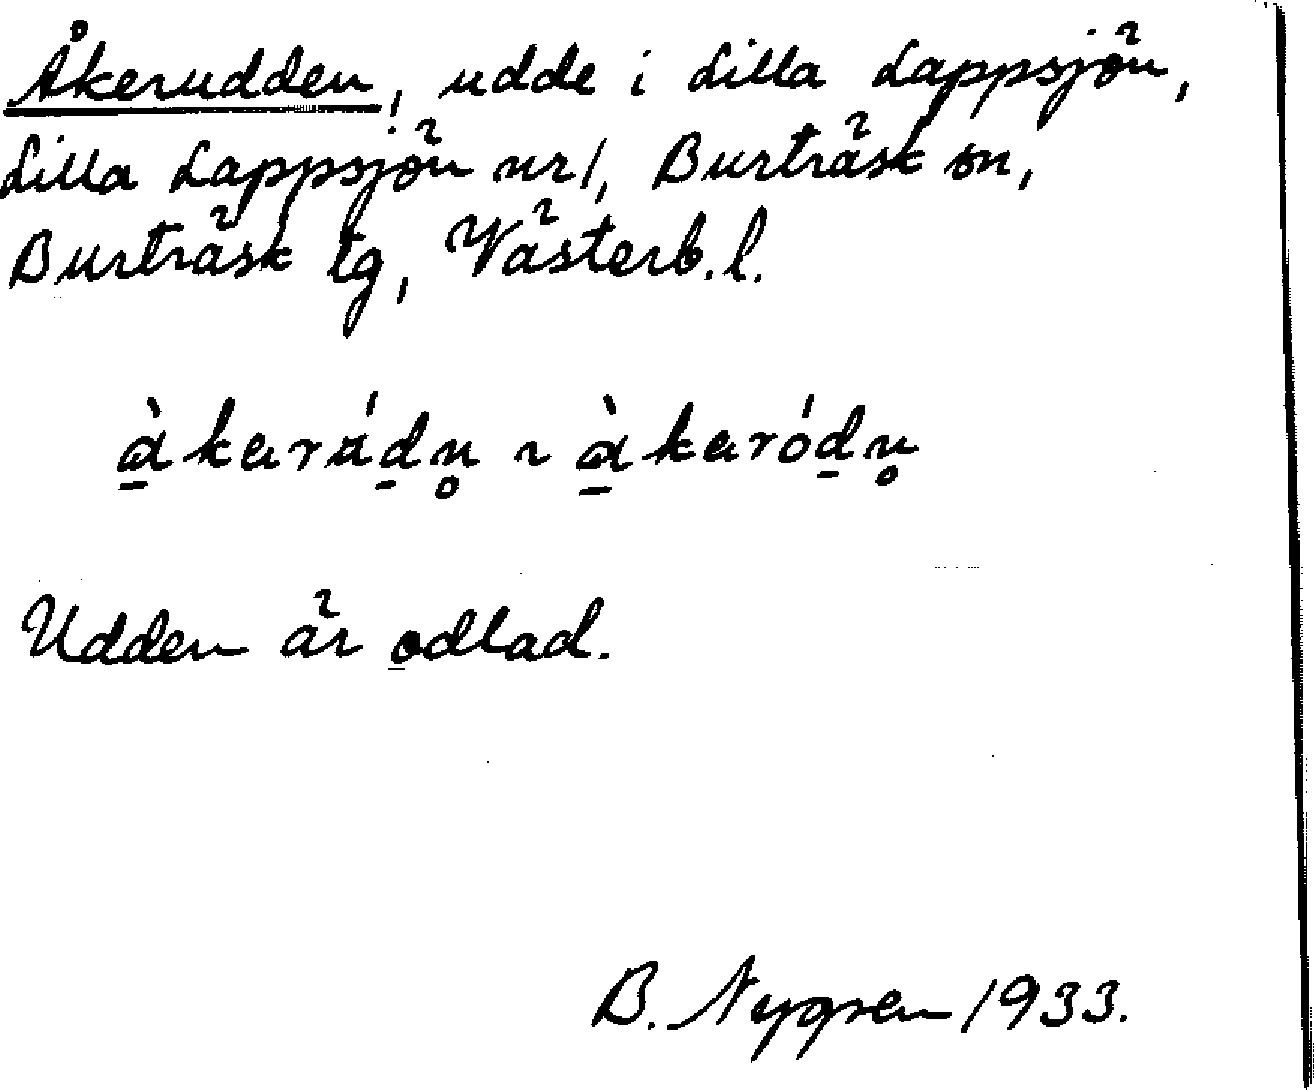 Åkerudden, udde i Lilla Lappsjön,
Lilla Lappsjön nr 1, Burträsk sn,
Burträsk tg, Västerb. l.
Udden är odlad.
B. Nygren 1933.